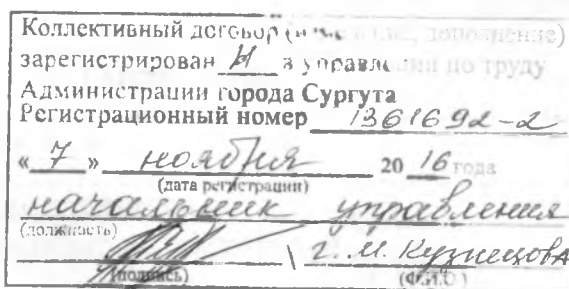 Коллективный договор (изменение, дополнение)
зарегистрирован И в управлении по труду
Администрации города Сургута
Регистрационный номер 1361692-2
« 7 » ноября 20 16 года
(дата регистрации)
начальник управления
(должность)
\ Г. М. Кузнецова
(подпись) (Ф.И.О.)